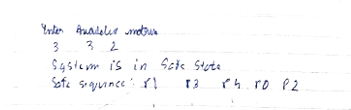 Enter Available matrix
3 3 2
System is in Safe State
Safe sequence: P1 P3 P4 P0 P2